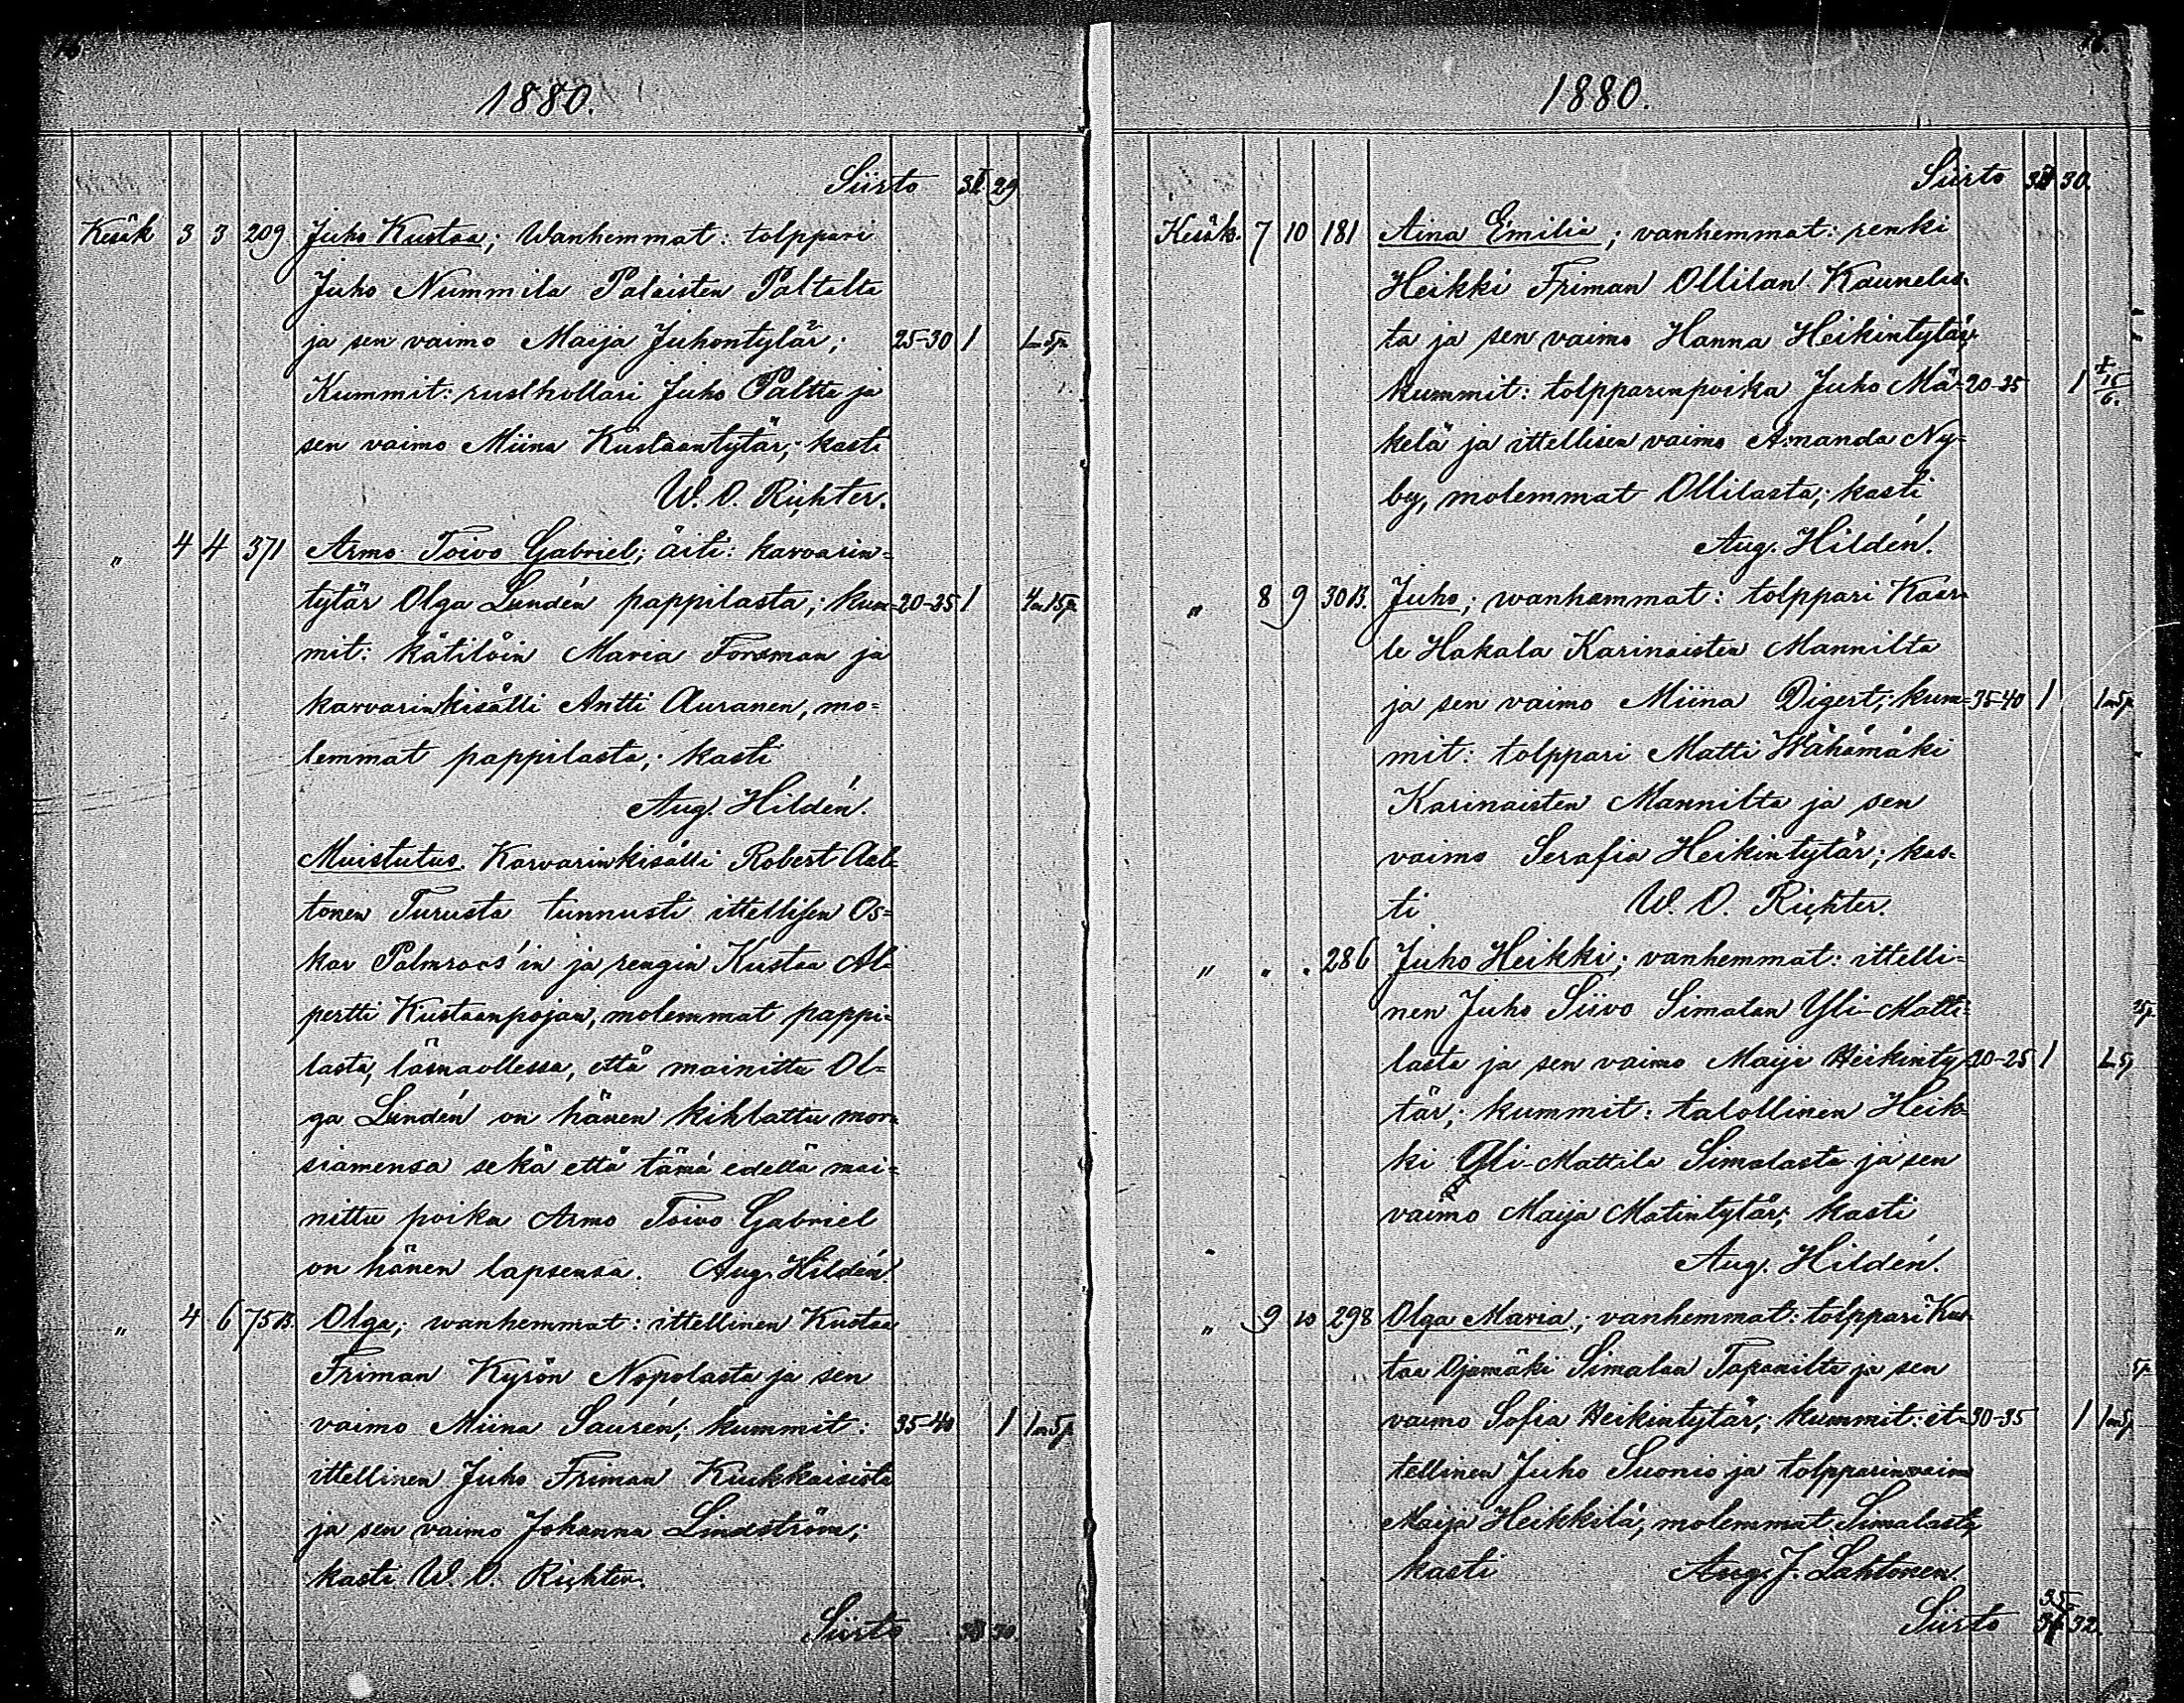 1880.
Siirto 29
Kesäk 3 3 209 Juho Kustaa; Wanhemmat: tolppari
Juho Nummila Palaisten Paltalta
ja sen vaimo Maija Juhontytär; 25-30 1
Kummit: rusthollari Juho Paltta ja
sen vaimo Miina Kustaantytär; kasti
W. O. Richter.
„ 4 4 371 Armo Toivo Gabriel; äiti: karvarin-
tytär Olga Lundén pappilasta; kum- 20-25 1
mit: kätilöin Maria Forsman ja
karvarinkisälli Antti Auranen, mo-
lemmat pappilasta; kasti
Aug. Hildén.
Muistutus. Karvarinkisälli Robert Aal-
tonen Turusta tunnusti ittellisen Os-
kar Palmroos'in ja rengin Kustaa Al-
pertti Kustaanpojan, molemmat pappi-
lasta, läsnaollessa, että mainittu Ol-
ga Lundén on hänen kihlattu mor-
siamensa sekä että tämä edellä mai-
nittu poika Armo Toivo Gabriel
on hänen lapsensa. Aug. Hildén.
„ 4 6 75B. Olga; wanhemmat: ittellinen Kustaa
Friman Kyrön Nopolasta ja sen
vaimo Miina Saurén; kummit: 35-40 1 1m5p
ittellinen Juho Friman Kuikkaisista
ja sen vaimo Johanna Lindström;
kasti W. O. Richter.
Siirto 30.
1880.
Siirto 30.
Kesäk. 7 10 181 Aina Emilia; vanhemmat: renki
Heikki Friman Ollilan Kaunelas-
ta ja sen vaimo Hanna Heikintytär
kummit: tolpparinpoika Juho Mä- 20-25 1
kelä ja ittellisen vaimo Amanda Ny-
by, molemmat Ollilasta; kasti
Aug. Hildén.
„ 8 9 30B. Juho; wanhemmat: tolppari Kaar-
le Hakala Karinaisten Mannilta
ja sen vaimo Miina Digert; kum- 35-40 1 1m5p
mit: tolppari Matti Wähämäki
Karinaisten Mannilta ja sen
vaimo Serafia Heikintytär; kas-
ti W. O. Richter.
„ . . 286 Juho Heikki; vanhemmat: ittelli-
nen Juho Siivo Simalan Yli-Matti-
lasta ja sen vaimo Maija Heikinty- 20-25 1
tär; kummit: talollinen Heik-
ki Yli-Mattila Simalasta ja sen
vaimo Maija Matintytär; kasti
Aug. Hildén.
„ 9 10 298 Olga Maria; vanhemmat: tolppari Kus-
taa Ojamäki Simalan Tapanilta ja sen
vaimo Sofia Heikintytär; kummit: it- 30-35 1 1m5p
tellinen Juho Suonio ja tolpparinvaimo
Maija Heikkilä, molemmat Simalasta
kasti Aug. J. Lahtonen.
Siirto 35. 32.